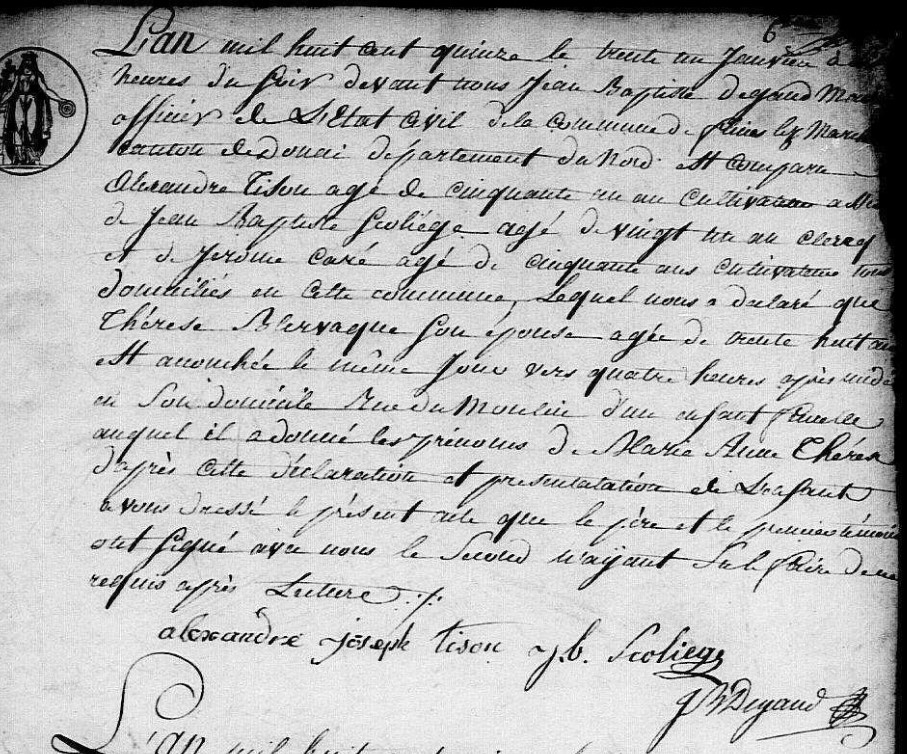 6
L'an mil huit cent quinze le trente un Janvier à
heures du soir devant nous Jean Baptiste Degand Mai
officier de L'Etat Civil de la Commune de flines lez March
canton de Douai département du Nord est comparu
Alexandre Tison agé de cinquante un an Cultivateur
de Jean Baptiste Scoliége agé de vingt un an clercq
et de Jerome Caré agé de cinquante ans Cultivateur tous
domiciliés en cette commune, Lequel nous a declaré que
Thérese Blervaque son épouse agée de trente huit ans
est accouchée le même Jour vers quatre heures après midi
en son domicile Rue du Moulin d'un enfant femelle
auquel il a donné les prénoms de Marie Anne Thérese
d'après cette déclaration et presentatation de L'enfant
avons dressé le présent acte que le père et le premier témoin
ont signé avec nous le Second n'ayant Su le faire de ce
requis après Lecture
alexandre joseph tison j.b. Scoliege
JB Degand
L'an mil huit